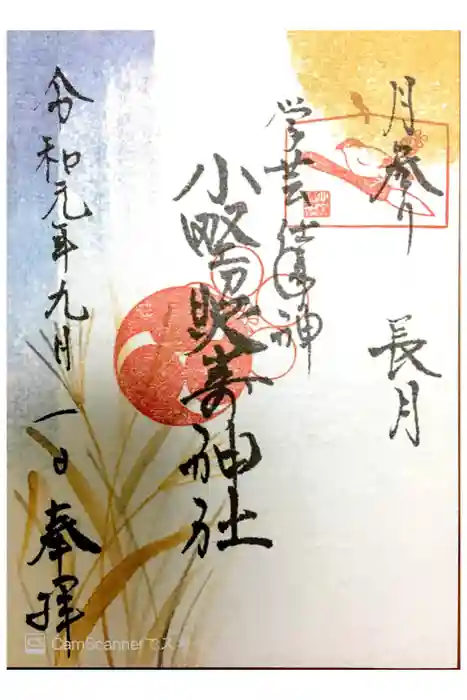 月参り
長月
学芸 神
小野照崎神社
令和元年九月一日奉拝
CamScannerでス